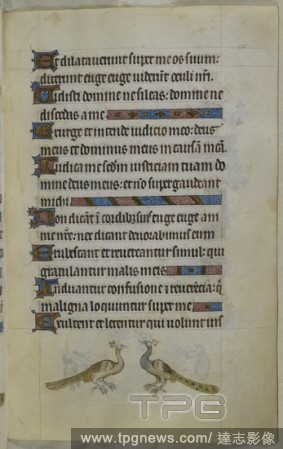 Et dilataverunt super me os suum:
dixerunt euge euge viderunt oculi nr̄i.
Vidisti domine ne sileas: domine ne
discedas a me
Exurge et intende iudicio meo: deus
meus et dominus meus in causā meā.
Iudica me scd̄m iusticiam tuam do
mine deus meus: et nō supergaudeant
michi
Non dicāt ī cordibus suis euge euge aīn
me nr̄e: nec dicant devorabimus eum
Erubescant et revereantur simul: qui
gratulantur malis meis
Induantur confusione et reverēcia: q̄
maligna loquuntur super me
Exultent et letentur qui volunt ius
TPG
www.tpgnews.com/ 達志影像